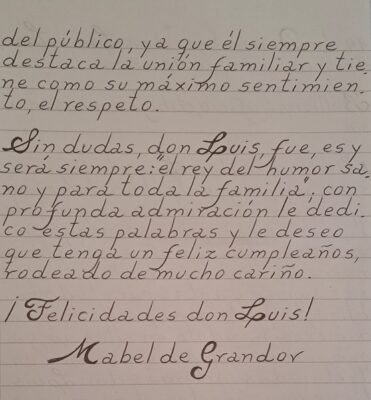 del público, ya que él siempre
destaca la unión familiar y tie.
ne como su máximo sentimien.
to, el respeto.
Sin dudas, don Luis, fue, es y
será siempre: "el rey del humor sa.
no y para toda la familia", con
profunda admiración le dedi.
co estas palabras y le deseo
que tenga un feliz cumpleaños,
rodeado de mucho cariño.
¡Felicidades don Luis!
Mabel de Grandor